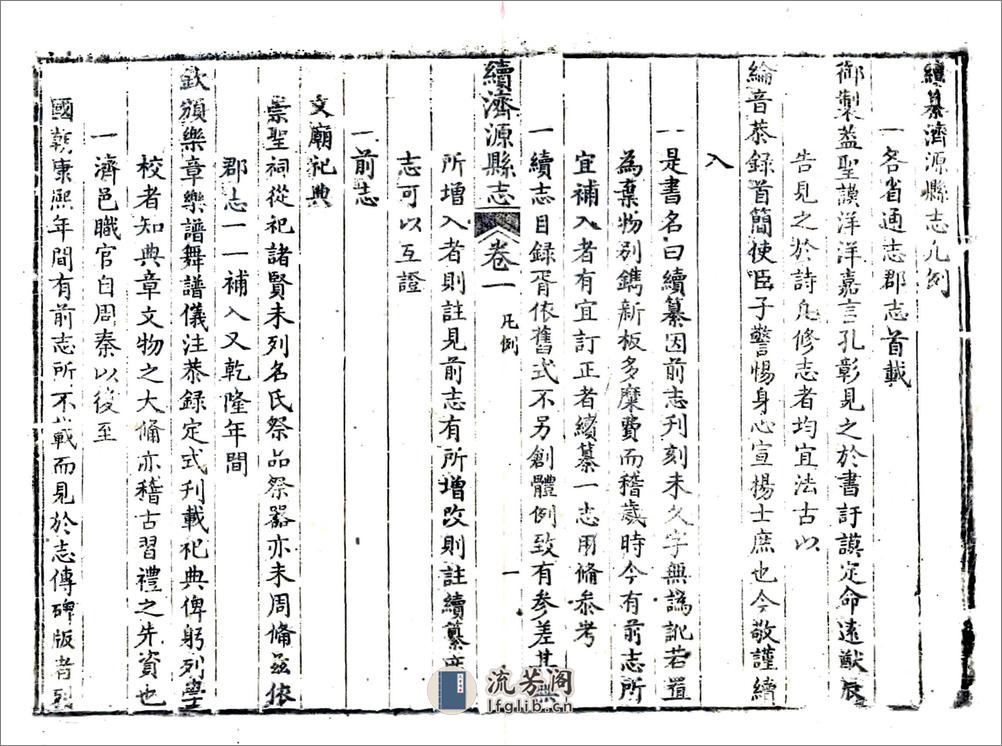 續纂濟源縣志凡例
一各省通志郡志首載
御製蓋聖謨洋洋嘉言孔彰見之於書訏謨定命遠猷辰
告見之於詩凡修志者均宜法古以
綸音恭錄首簡使臣子警惕身心宣揚士庶也今敬謹續
入
一是書名曰續纂因前志刋刻未久字無譌訛若置
為棄物别鐫新板多糜費而稽歲時今有前志所
宜補入者有宜訂正者續纂一志用備叅考
一續志目録胥依舊式不另創體例致有參差其無
續濟源縣志 卷一 凡例 一
所增入者則註見前志有所增改則註續纂
志可以互證
一前志
文廟祀典
崇聖祠從祀諸賢未列名氏祭品祭器亦未周備兹依
郡志一一補入又乾隆年間
欽頒樂章樂譜舞譜儀注恭録定式刋載祀典俾躬列學
校者知典章文物之大備亦稽古習禮之先資也
一濟邑職官自周秦以後至
國朝康熙年間有前志所不載而見於志傳碑版者
流芳阁
lfglib.cn